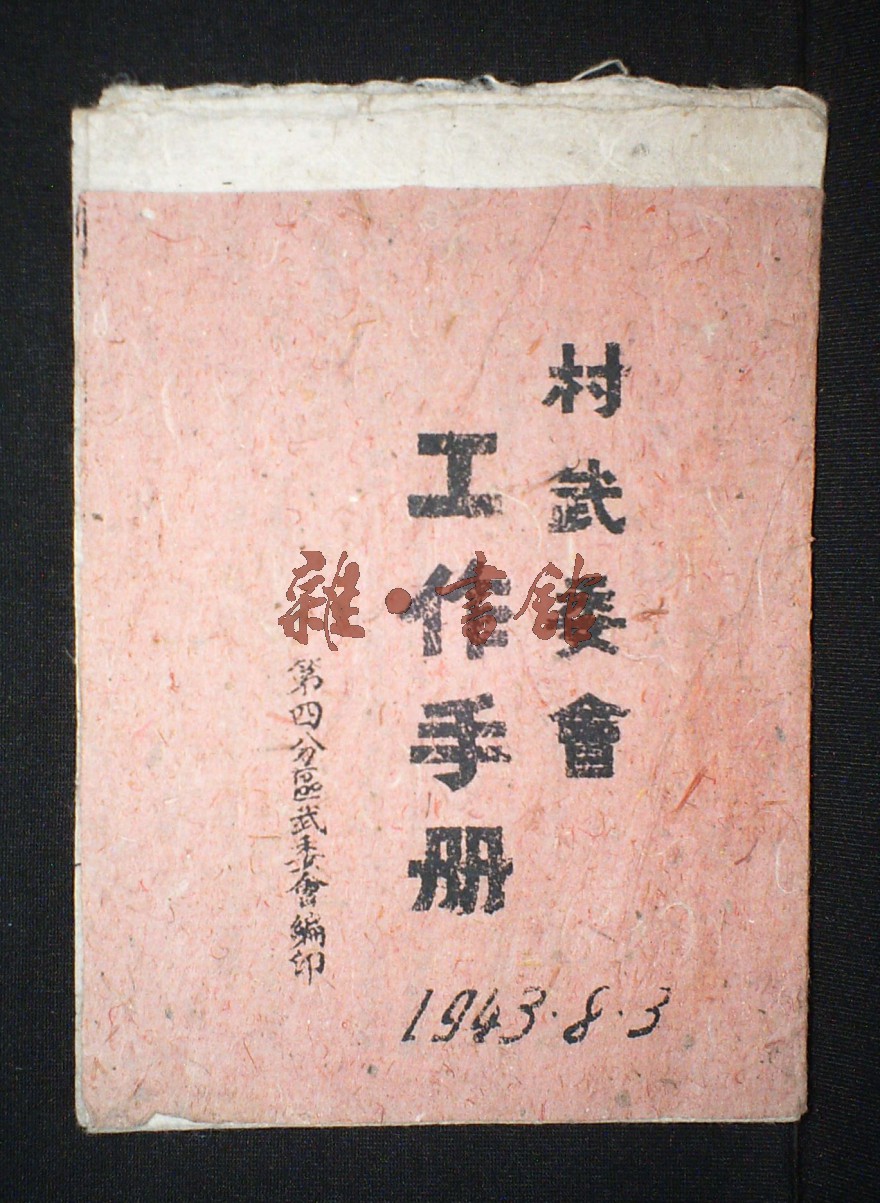 村武委會
工作手册
第四分區武委會編印
1943·8·3
雜·書館